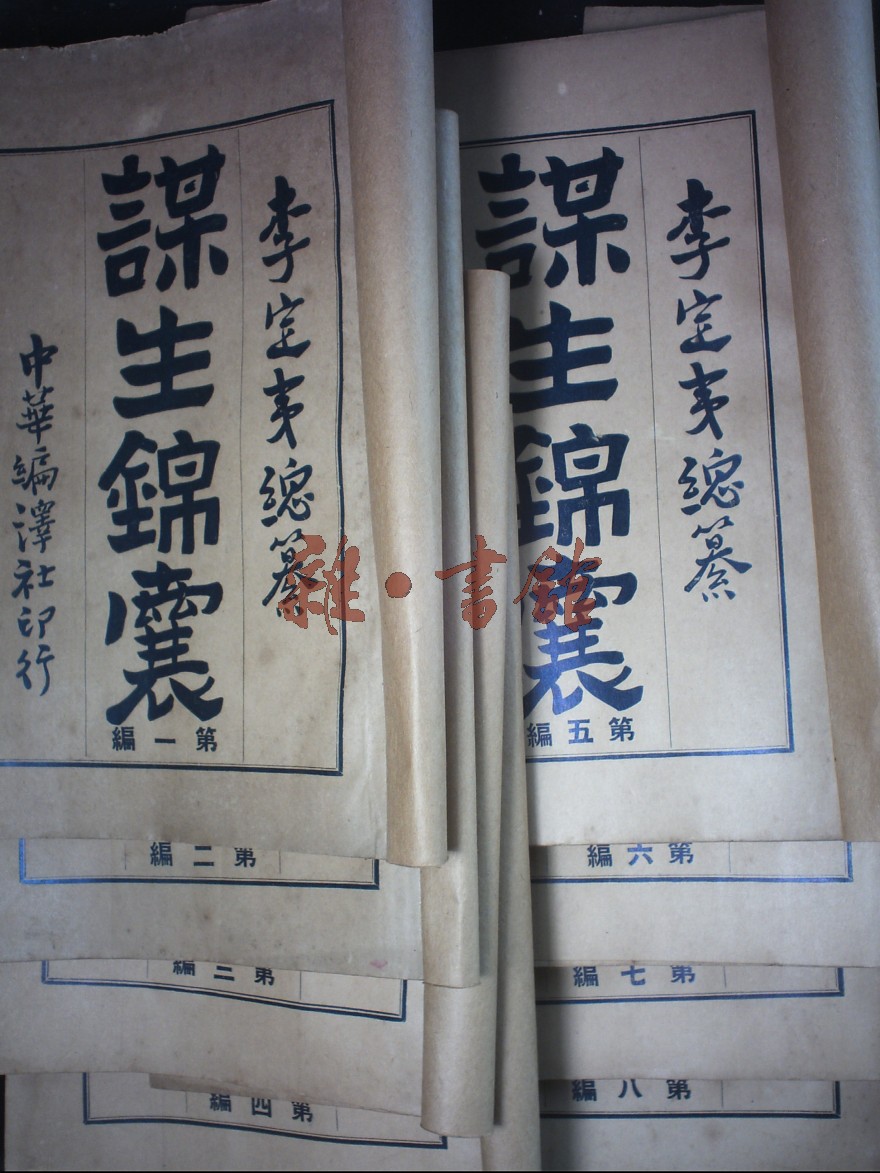 李定夷總纂
謀生錦囊
第一編
中華編譯社印行
第二編
第三編
第四編
李定夷總纂
謀生錦囊
第五編
第六編
第七編
第八編
雜·書館